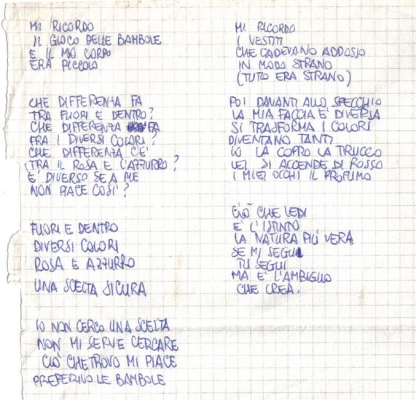 MI RICORDO
IL GIOCO DELLE BAMBOLE
E IL MIO CORPO
ERA PICCOLO
CHE DIFFERENZA FA
TRA FUORI E DENTRO?
CHE DIFFERENZA FA
FRA I DIVERSI COLORI?
CHE DIFFERENZA C'E'
TRA IL ROSA E L'AZZURRO?
E' DIVERSO SE A ME
NON PIACE COSI'?
FUORI E DENTRO
DIVERSI COLORI
ROSA E AZZURRO
UNA SCELTA SICURA
IO NON CERCO UNA SCELTA
NON MI SERVE CERCARE
CIO' CHE TROVO MI PIACE
PREFERIVO LE BAMBOLE
MI RICORDO
I VESTITI
CHE CADEVANO ADDOSSO
IN MODO STRANO
(TUTTO ERA STRANO)
POI DAVANTI ALLO SPECCHIO
LA MIA FACCIA E' DIVERSA
SI TRASFORMA I COLORI
DIVENTANO TANTI
IO LA COPRO LA TRUCCO
LEI SI ACCENDE DI ROSSO
I MIEI OCCHI IL PROFUMO
CIO' CHE VEDI
E' L'ISTINTO
LA NATURA PIU' VERA
SE MI SEGUI
TU SEGUI
MA E' L'AMBIGUO
CHE CREA.